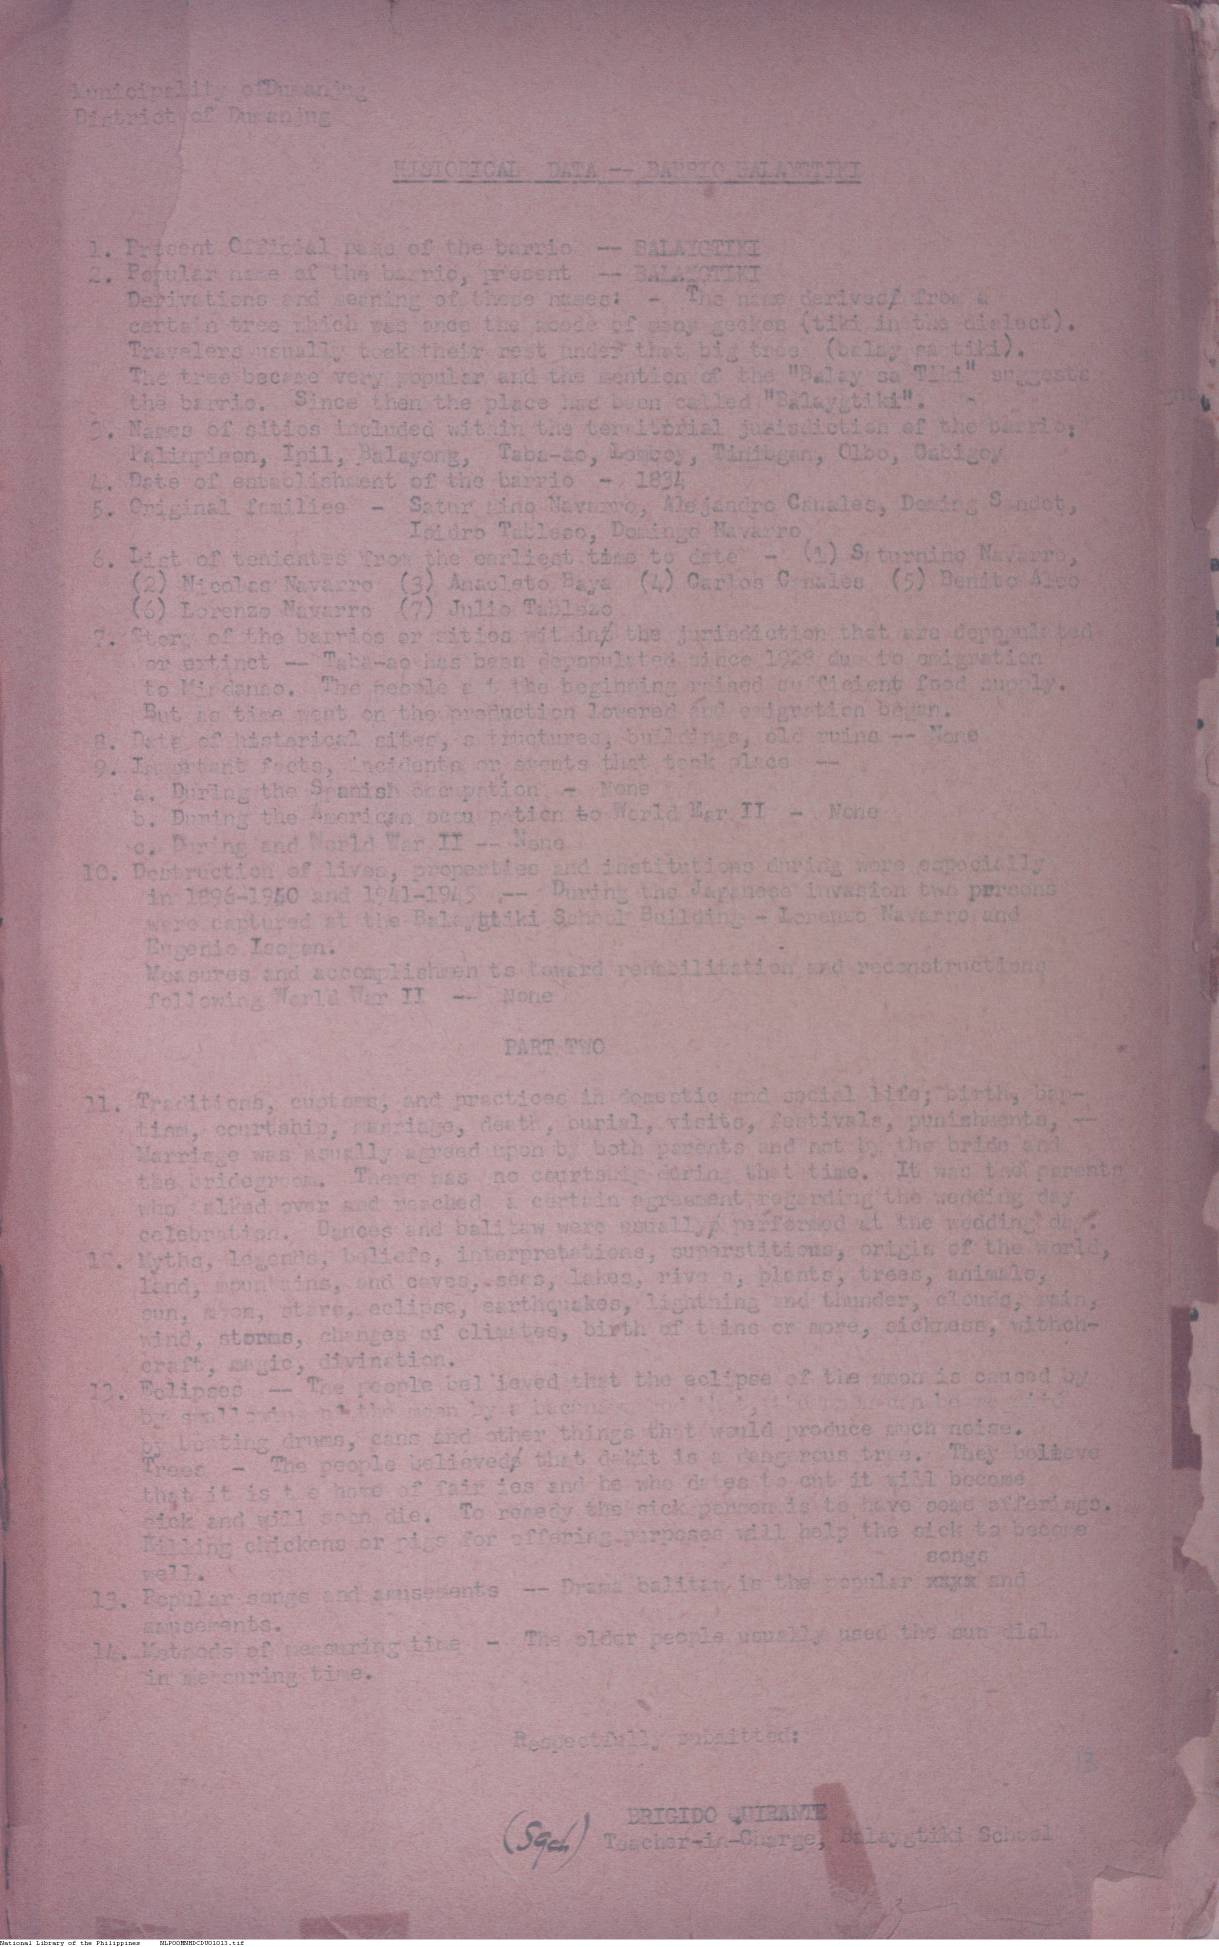 Municipality of Dumanjug
District of Dumanjug
HISTORICAL DATA -- BARRIO BALAYGTIKI
1. Present Official name of the barrio -- BALAYGTIKI
2. Popular name of the barrio, present -- BALAYGTIKI
Derivations and meaning of these names: - The name derived from a
certain tree which was once the abode of many geckos (tiki in the dialect).
Travelers usually took their rest under that big tree (balay sa tiki).
The tree became very popular and the mention of the "Balay sa Tiki" suggests
the barrio. Since then the place has been called "Balaygtiki".
3. Names of sitios included within the territorial jurisdiction of the barrio;
Palinpinon, Ipil, Balayong, Taba-ao, Lomboy, Tinibgan, Olbo, Gabigoy
4. Date of establishment of the barrio - 1834
5. Original families - Satur nino Navarro, Alejandro Canales, Doming Sandot,
Isidro Tableso, Domingo Navarro
6. List of tenientes from the earliest time to date - (1) Saturnino Navarro,
(2) Nicolas Navarro (3) Anacleto Baya (4) Carlos Canales (5) Benito
(6) Lorenzo Navarro (7) Julio Tablezo
7. Story of the barrios or sitios within the jurisdiction that are depopulated
or extinct -- Taba-ao has been depopulated since 1928 due to emigration
to Mindanao. The people a t the beginning raised sufficient food supply.
But as time went on the production lowered and emigration began.
8. Data of historical sites, s tructures, buildings, old ruins -- None
9. Important facts, incidents or events that took place --
a. During the Spanish occupation - None
b. During the American occu pation to World War II - None
c. During and World War II -- None
10. Destruction of lives, properties and institutions during wars especially
in 1896-1950 and 1941-1945 -- During the Japanese invasion two persons
were captured at the Balaygtiki School Building - Lorenzo Navarro and
Eugenio
Measures and accomplishmen ts toward rehabilitation and reconstructions
following World War II -- None
PART TWO
11. Traditions, customs, and practices in domestic and social life; birth, bap-
tism, courtship, marriage, death, burial, visits, festivals, punishments, --
Marriage was usually agreed upon by both parents and not by the bride and
the bridegroom. There was no courtship during that time. It was two parents
who talked over and reached a certain agreement regarding the wedding day
celebration. Dances and balitaw were usually performed at the wedding day.
12. Myths, legends, beliefs, interpretations, superstitions, origin of the world,
land, mountains, and caves, seas, lakes, rivers, plants, trees, animals,
sun, moon, stars, eclipse, earthquakes, lightning and thunder, clouds, rain,
wind, storms, changes of climates, birth of twins or more, sickness, withch-
craft, magic, divination.
13. Eclipses -- The people bel ieved that the eclipse of the moon is caused by
by swallowing of the moon by a
by beating drums, cans and other things that would produce much noise.
Trees - The people believed that dakit is a dangerous tree. They believe
that it is t e home of fair ies and he who dates to cut it will become
sick and will soon die. To remedy the sick person is to have some offerings.
Killing chickens or pigs for offering purposes will help the sick to become
well.
songs
13. Popular songs and amusements -- Drama balitaw is the popular xxxx and
amusements.
14. Methods of measuring time - The older people usually used the sun dial
in measuring time.
Respectfully submitted:
13
(Sgd) BRIGIDO QUIRANTE
Teacher-in-Charge, Balaygtiki School
National Library of the Philippines NLPOOMNHDCDU01013.tif